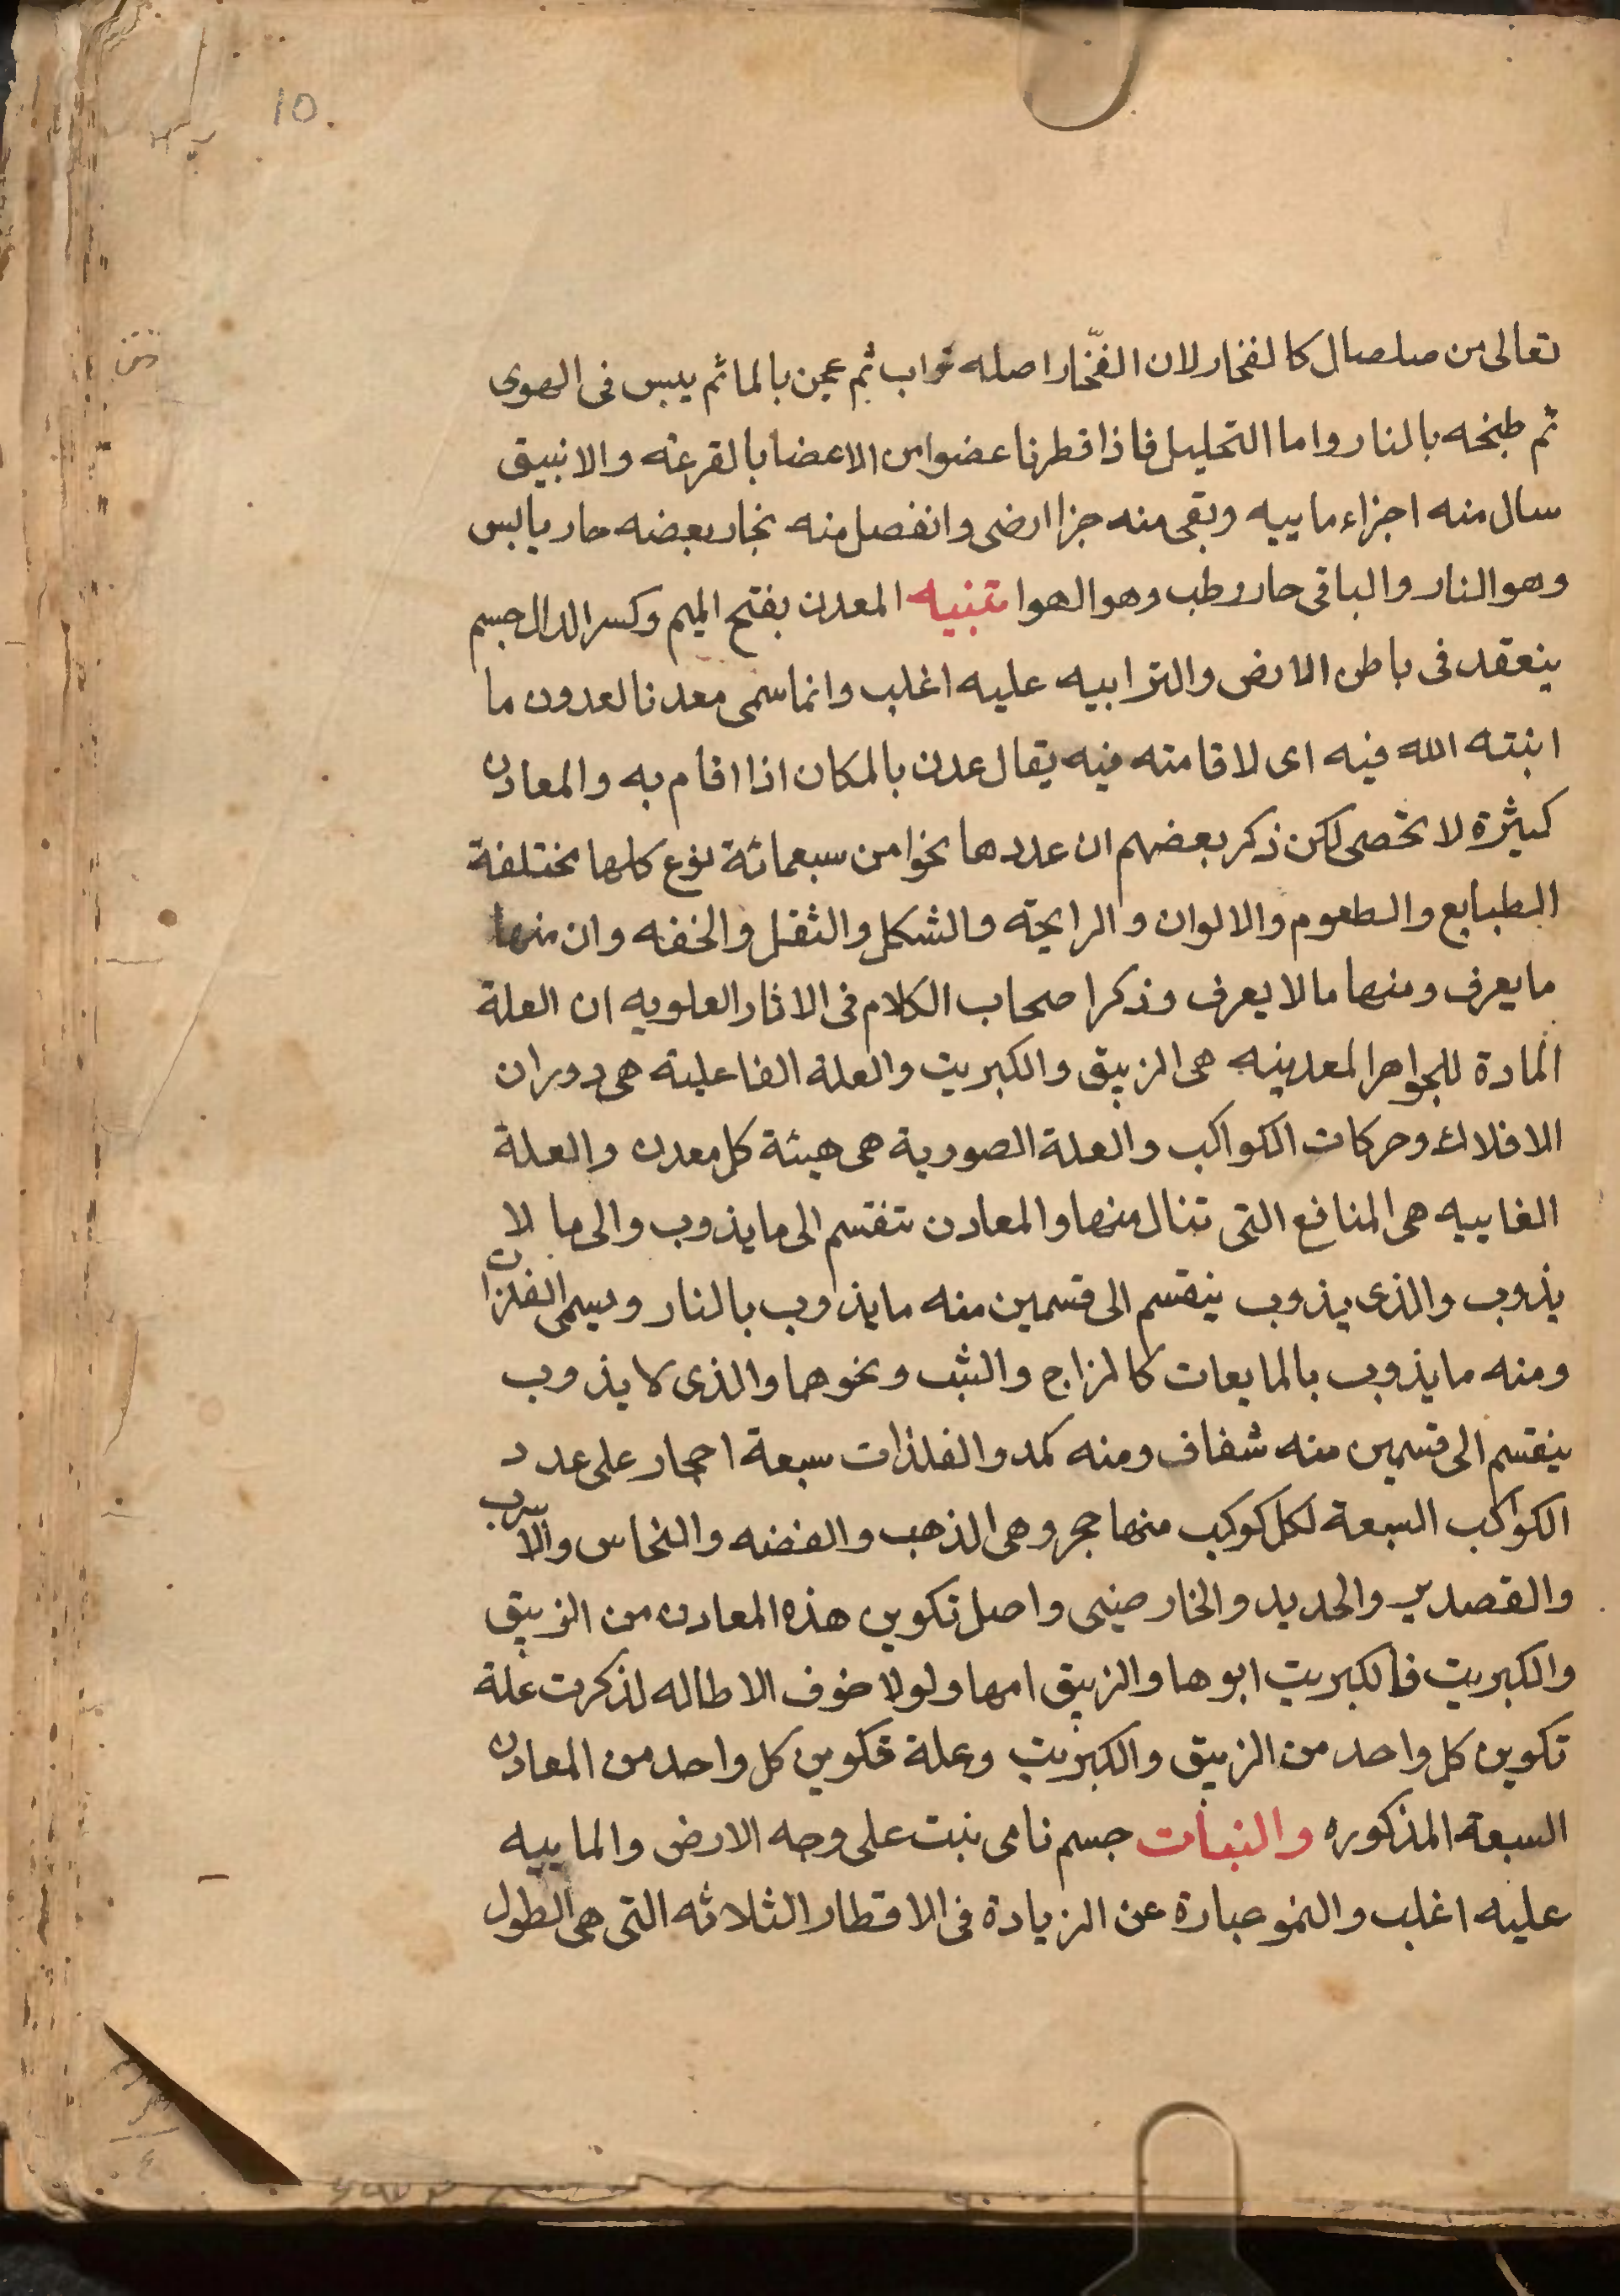 10.
تعالى من صلصال كالفخار لان الفخّار اصله تراب ثم عجن بالما ثم يبس فى الهوى
ثم طبخه بالنار واما التحليل فاذا قطرنا عضوا من الاعضا بالقرعه والانبيق
سال منه اجزاء ماييه وبقى منه جزا ارضى وانفصل منه بخار بعضه حار يابس
وهو النار والباقى حار رطب وهو الهوا تنبيه المعدن بفتح الميم وكسر الدال جسم
ينعقد فى باطن الارض والترابيه عليه اغلب وانما سمى معدنا لعدون ما
انبته الله فيه اى لاقامته فيه يقال عدن بالمكان اذا اقام به والمعادن
كثيرة لا تحصى لكن ذكر بعضهم ان عددها نحوا من سبعمائة نوع كلها مختلفة
الطبايع والطعوم والالوان والرايحة والشكل والثقل والخفه وان منها
ما يعرف ومنها ما لا يعرف وذكر اصحاب الكلام فى الاثار العلويه ان العلة
المادة للجواهر المعدنيه هى الزيبق والكبريت والعلة الفاعلية هى دوران
الافلاك وحركات الكواكب والعلة الصورية هى هيئة كل معدن والعلة
الغاييه هى المنافع التى تنال منها والمعادن تنقسم الى ما يذوب والى ما لا
يذوب والذى يذوب ينقسم الى قسمين منه ما يذوب بالنار ويسمى الفلزات
ومنه ما يذوب بالمايعات كالزاج والشب ونحوهما والذى لا يذوب
ينقسم الى قسمين منه شفاف ومنه كمد والفلذات سبعة احجار على عدد
الكواكب السبعة لكل كوكب منها حجر وهى الذهب والفضه والنحاس والاسرب
والقصدير والحديد والخارصينى واصل تكوين هذه المعادن من الزيبق
والكبريت فالكبريت ابوها والزيبق امها ولولا خوف الاطاله لذكرت علة
تكوين كل واحد من الزيبق والكبريت وعلة تكوين كل واحد من المعادن
السبعة المذكوره والنبات جسم نامى ينبت على وجه الارض والماييه
عليه اغلب والنمو عبارة عن الزيادة فى الاقطار الثلاثه التى هى الطول